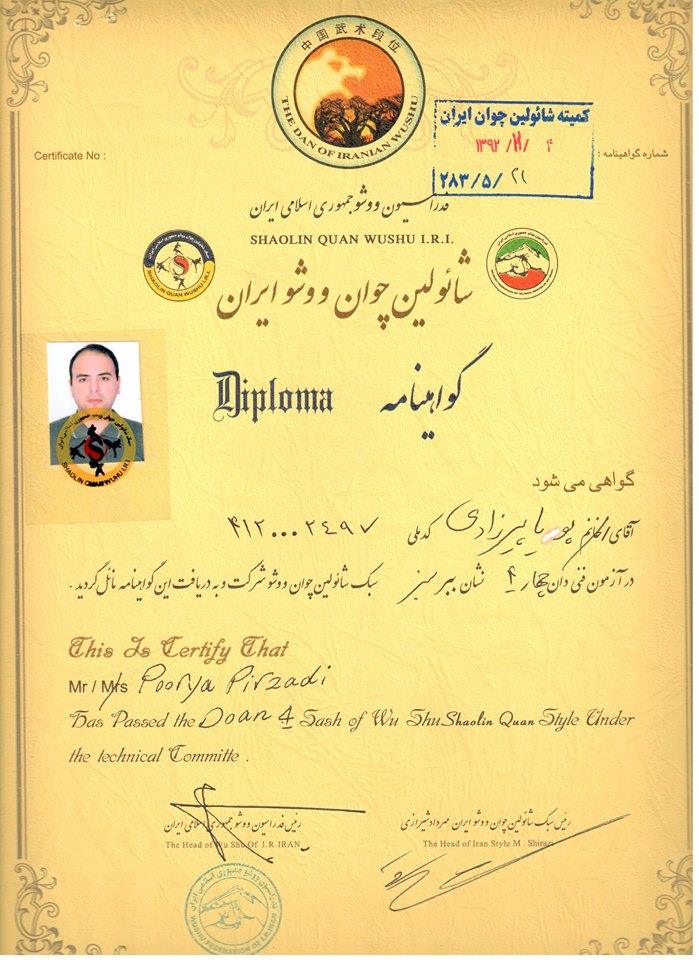 中国武术段位
THE DAN OF IRANIAN WUSHU
کمیته شائولین چوان ایران
۱۳۹۲/۱۱/۴
۲۸۳/۵/۲۱
Certificate No :
شماره گواهینامه :
فدراسیون ووشو جمهوری اسلامی ایران
SHAOLIN QUAN WUSHU I.R.I.
SHAOLIN QUAN WUSHU I.R.I.
شائولین چوان ووشو ایران
Diploma گواهینامه
SHAOLIN QUAN WUSHU I.R.I.
گواهی می شود
آقای/خانم پوریا پیرزادی کدملی ۴۱۲۰۰۰۲۴۹۷
در آزمون فنی دان چهار ۴ نشان ببر سبز سبک شائولین چوان ووشو شرکت و به دریافت این گواهینامه نائل گردید .
This Is Certify That
Mr / Mrs Poorya Pirzadi
Has Passed the Doan 4 Sash of Wu Shu Shaolin Quan Style Under
the technical Committe .
رئیس سبک شائولین چوان ووشو ایران مهرداد شیرازی
رئیس فدراسیون ووشو جمهوری اسلامی ایران
The Head of Wu Shu Of I.R.IRAN
The Head of Iran Style M . Shirazi
فدراسیون ووشو جمهوری اسلامی ایران
WUSHU FEDERATION OF I.R.IRAN